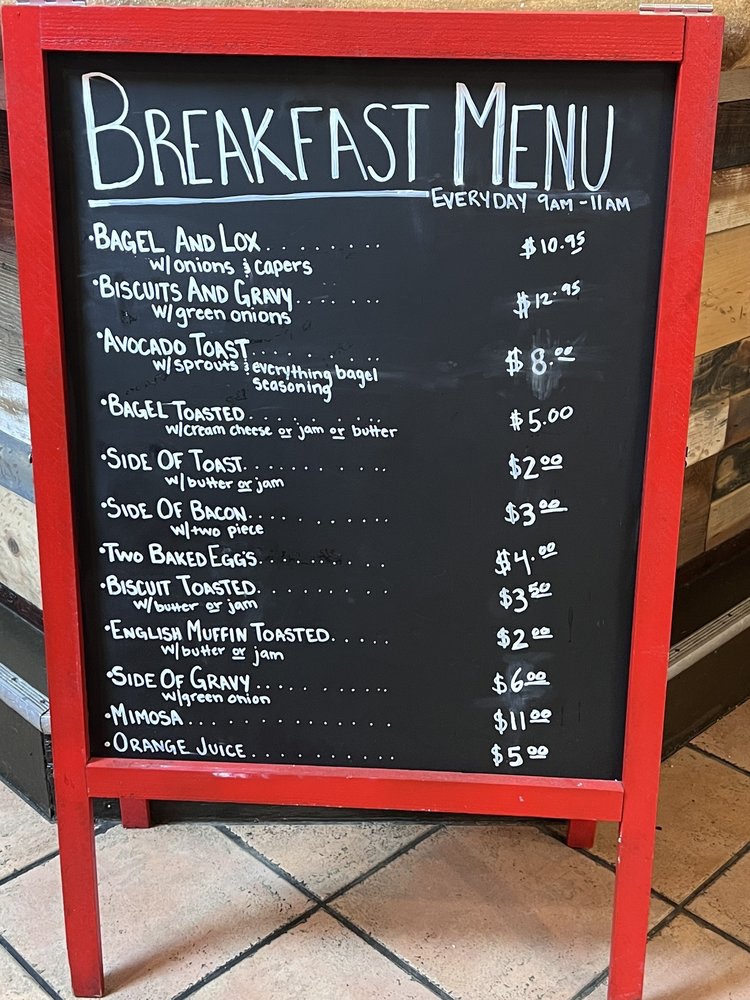 BREAKFAST MENU
EVERYDAY 9AM-11AM
•BAGEL AND LOX......... $10.95
w/onions & capers
•BISCUITS AND GRAVY....... $12.95
w/green onions
•AVOCADO TOAST........... $8.00
w/sprouts & everything bagel
seasoning
•BAGEL TOASTED........... $5.00
w/cream cheese or jam or butter
•SIDE OF TOAST........... $2.00
w/butter or jam
•SIDE OF BACON........... $3.00
w/two piece
•TWO BAKED EGG'S.......... $4.00
•BISCUIT TOASTED.......... $3.50
w/butter or jam
•ENGLISH MUFFIN TOASTED..... $2.00
w/butter or jam
•SIDE OF GRAVY.......... $6.00
w/green onion
•MIMOSA............... $11.00
•ORANGE JUICE........... $5.00